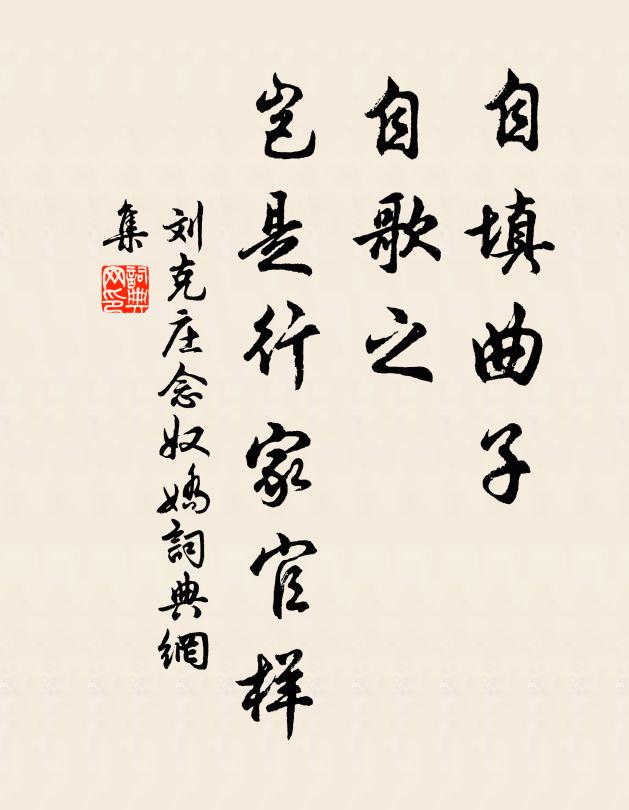 自填曲子
自歌之
岂是行家官样
刘克庄念奴嬌詞典網
集
詞典网印